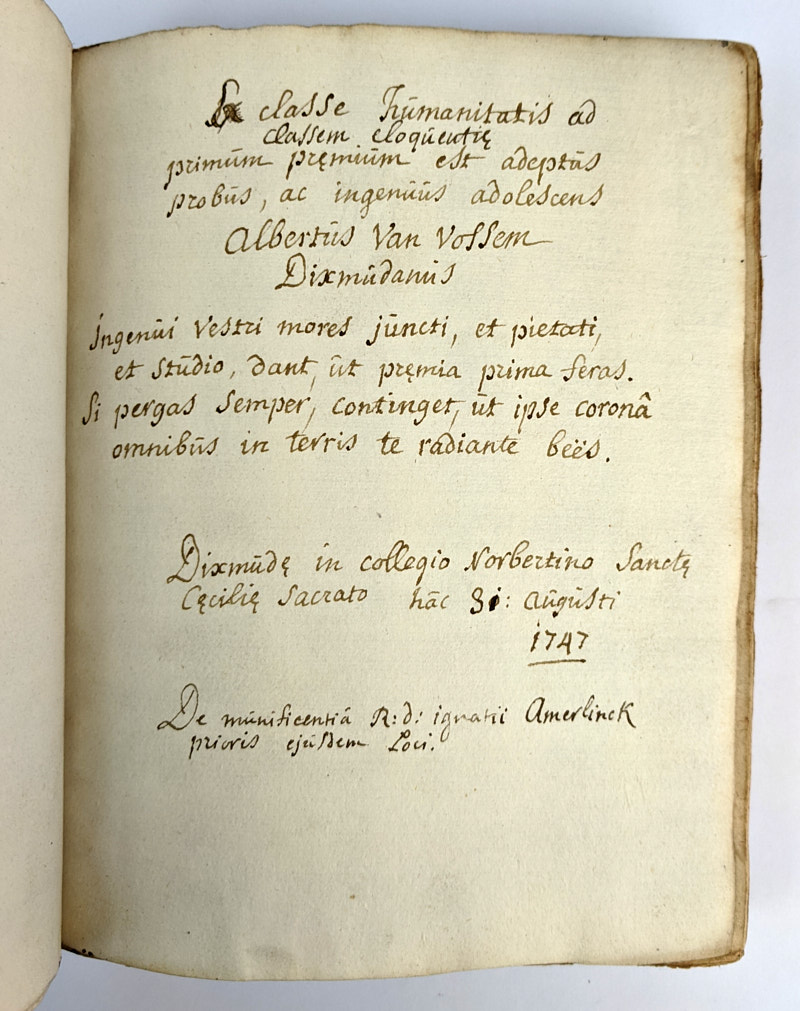 Ex classe hūmanitatis ad
classem eloqūentię
primūm pręmiūm est adeptūs
probūs, ac ingenūūs adolescens
Albertūs Van Vossem
Dixmūdanūs
Ingenūi Vestri mores jūncti, et pietati,
et stūdio, dant, ūt pręmia prima feras.
Si pergas semper, continget, ūt ipse coronâ
omnibūs in terris te radiante beës.
Dixmūdę in collegio Norbertino Sanctę
Cęcilię Sacrato hāc 31: aūgūsti
1747
De mūnificentiâ R: d: ignatii Amerlinck
prioris ejūsdem Loci.